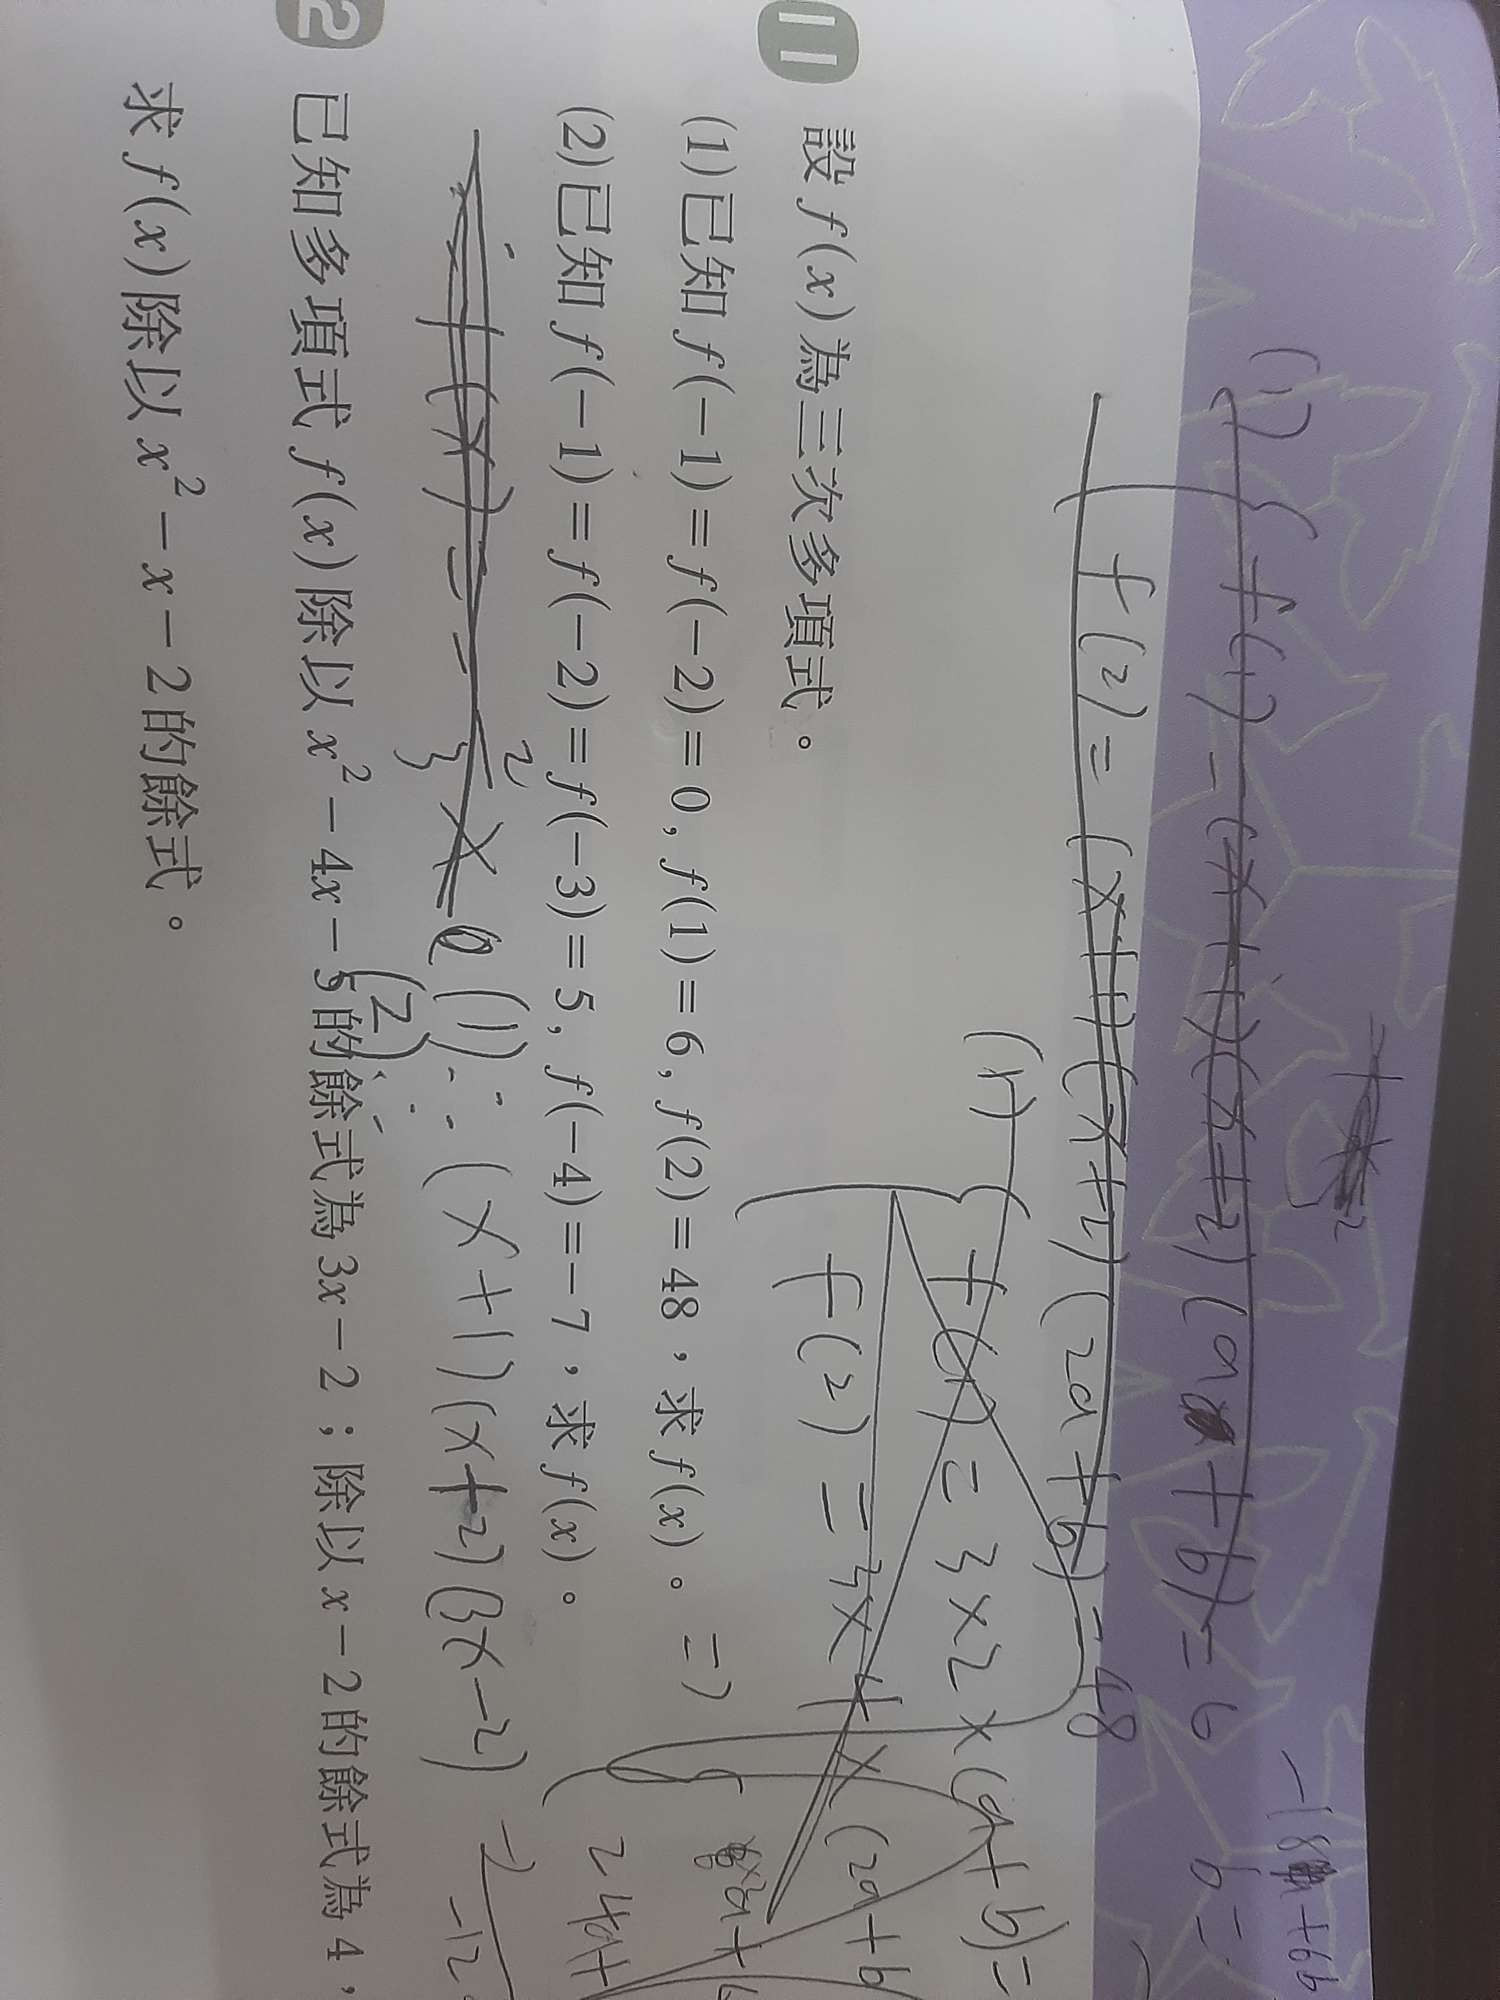 (1) f(1) = (x+1)(x+2)(a+b) = 6
f(2) = (x+1)(x+2)(2a+b) = 48
-18a+6b
b=
(1)
f(1) = 3×2×(a+b)=
f(2) = 3×4×(2a+b
11 設 f(x) 為三次多項式。
(1)已知 f(-1)=f(-2)=0, f(1)=6, f(2)=48,求 f(x)。
(2)已知 f(-1)=f(-2)=f(-3)=5, f(-4)=-7,求 f(x)。
24a+
-12
(1)∴(x+1)(x+2)(3x-2)
(2)∴
2 已知多項式 f(x) 除以 x²-4x-5的餘式為3x-2;除以x-2的餘式為4,
求 f(x)除以x²-x-2的餘式。